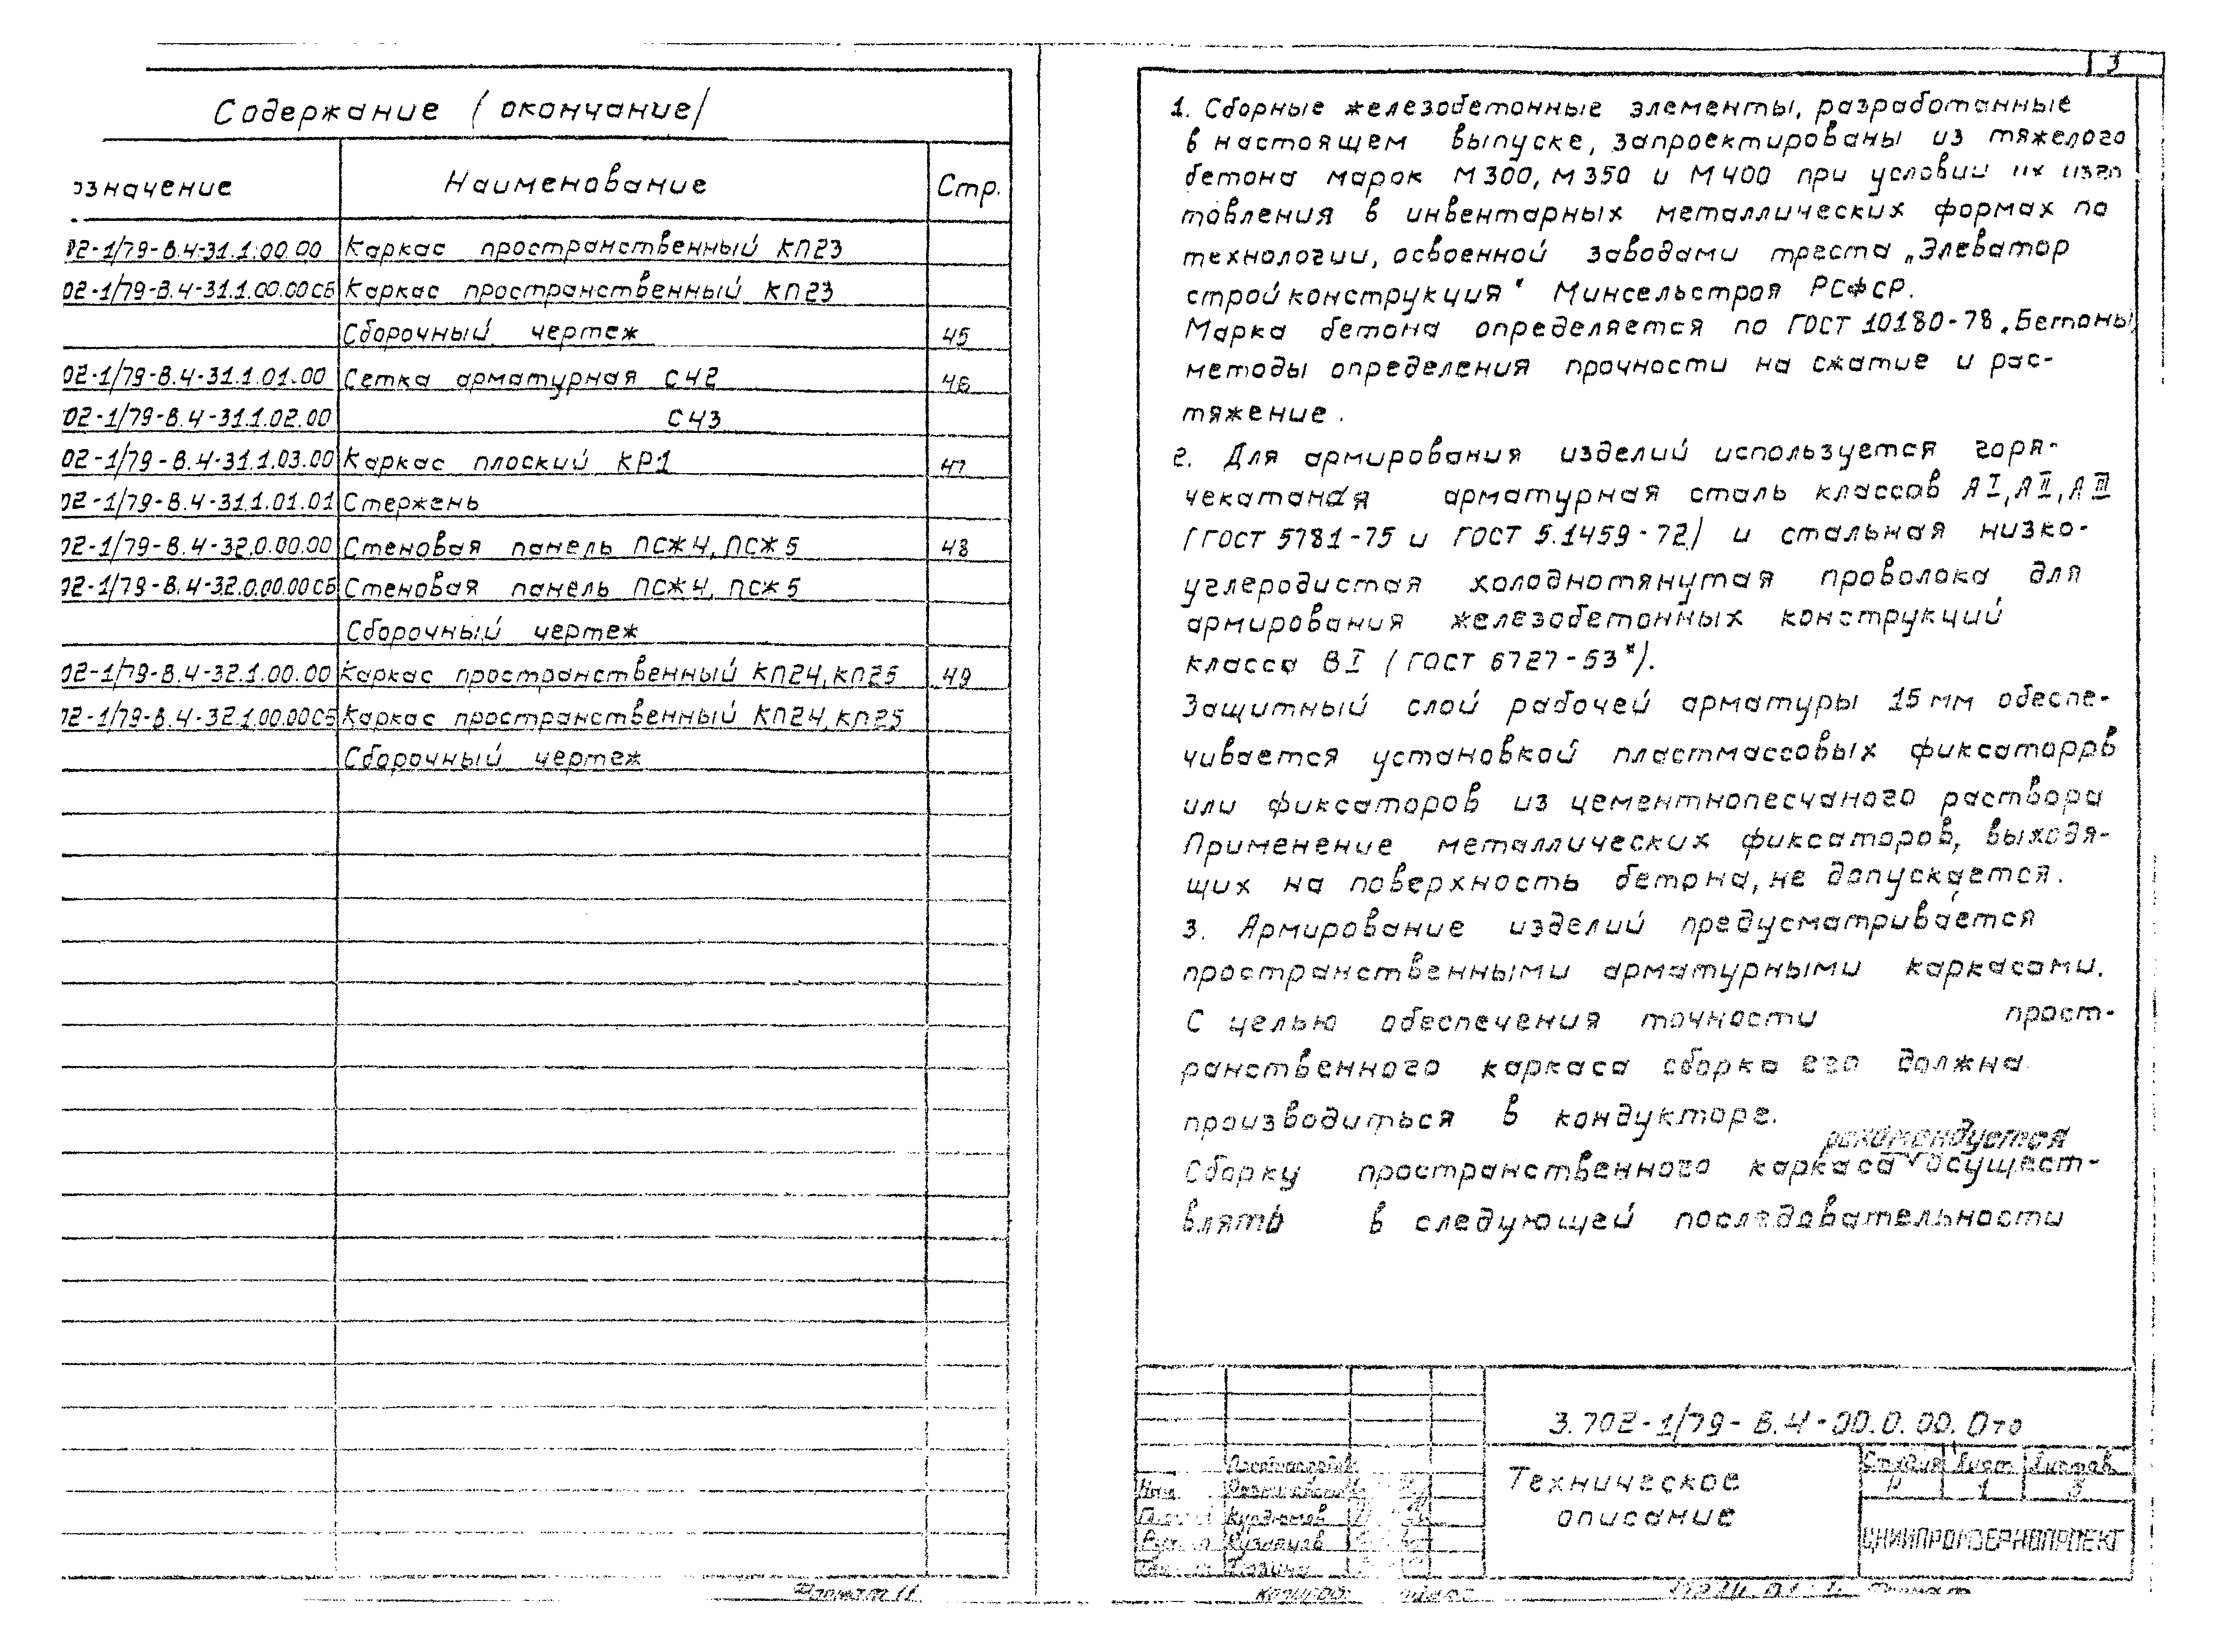 Содержание (окончание)
означение Наименование Стр.
02-1/79-В.4-31.1.00.00 Каркас пространственный КП23
02-1/79-В.4-31.1.00.00СБ Каркас пространственный КП23
Сборочный чертеж 45
02-1/79-В.4-31.1.01.00 Сетка арматурная С42 46
02-1/79-В.4-31.1.02.00 С43
02-1/79-В.4-31.1.03.00 Каркас плоский КР1 47
02-1/79-В.4-31.1.01.01 Стержень
02-1/79-В.4-32.0.00.00 Стеновая панель ПСЖ4, ПСЖ5 48
02-1/79-В.4-32.0.00.00СБ Стеновая панель ПСЖ4, ПСЖ5
Сборочный чертеж
02-1/79-В.4-32.1.00.00 Каркас пространственный КП24, КП25 49
02-1/79-В.4-32.1.00.00СБ Каркас пространственный КП24, КП25
Сборочный чертеж
Формат 11
3
1. Сборные железобетонные элементы, разработанные
в настоящем выпуске, запроектированы из тяжелого
бетона марок М300, М350 и М400 при условии их изго
товления в инвентарных металлических формах по
технологии, освоенной заводами треста „Элеватор
стройконструкция" Минсельстроя РСФСР.
Марка бетона определяется по ГОСТ 10180-78 „Бетоны,
методы определения прочности на сжатие и рас-
тяжение.
2. Для армирования изделий используется горя-
чекатаная арматурная сталь классов АI, АII, АIII
(ГОСТ 5781-75 и ГОСТ 5.1459-72) и стальная низко-
углеродистая холоднотянутая проволока для
армирования железобетонных конструкций
класса ВI (ГОСТ 6727-53*).
Защитный слой рабочей арматуры 15 мм обеспе-
чивается установкой пластмассовых фиксаторов
или фиксаторов из цементнопесчаного раствора
Применение металлических фиксаторов, выходя-
щих на поверхность бетона, не допускается.
3. Армирование изделий предусматривается
пространственными арматурными каркасами.
С целью обеспечения точности прост-
ранственного каркаса сборка его должна
производиться в кондукторе.
рекомендуется
Сборку пространственного каркаса осущест-
влять в следующей последовательности
3.702-1/79-В.4-00.0.00.0ТО
Техническое
описание
Стадия Лист Листов
1 3
ЦНИИПРОМЗЕРНОПРОЕКТ
Курдюмов
Кузнецов
Копиров. Формат